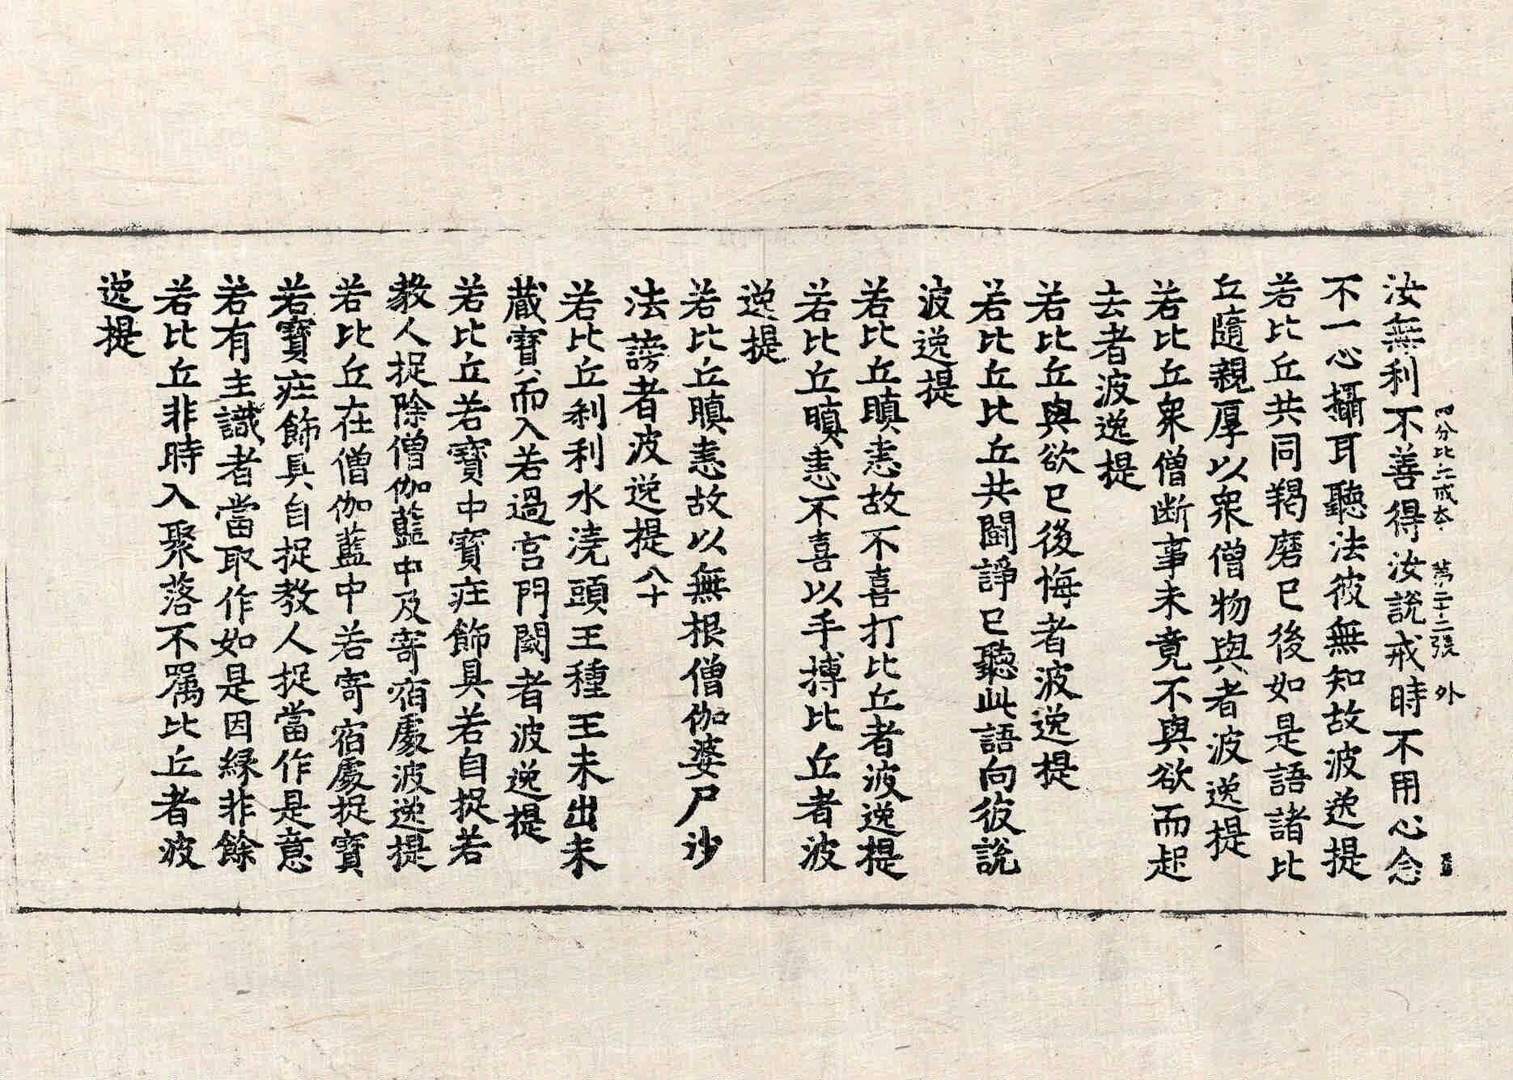 汝無利不善得汝說戒時不用心念
四分比丘戒本 第二十二張 外
不一心攝耳聽法彼無知故波逸提
若比丘共同羯磨已後如是語諸比
丘隨親厚以衆僧物與者波逸提
若比丘衆僧断事未竟不與欲而起
去者波逸提
若比丘與欲已後悔者波逸提
若比丘比丘共鬪諍已聽此語向彼說
波逸提
若比丘瞋恚故不喜打比丘者波逸提
若比丘瞋恚不喜以手搏比丘者波
逸提
若比丘瞋恚故以無根僧伽婆尸沙
法謗者波逸提八十
若比丘利利水澆頭王種王未出未
藏寶而入若過宫門閾者波逸提
若比丘若寶中寶庄飾具若自捉若
教人捉除僧伽藍中及寄宿處波逸提
若比丘在僧伽藍中若寄宿處捉寶
若寶庄飾具自捉教人捉當作是意
若有主識者當取作如是因緣非餘
若比丘非時入聚落不屬比丘者波
逸提